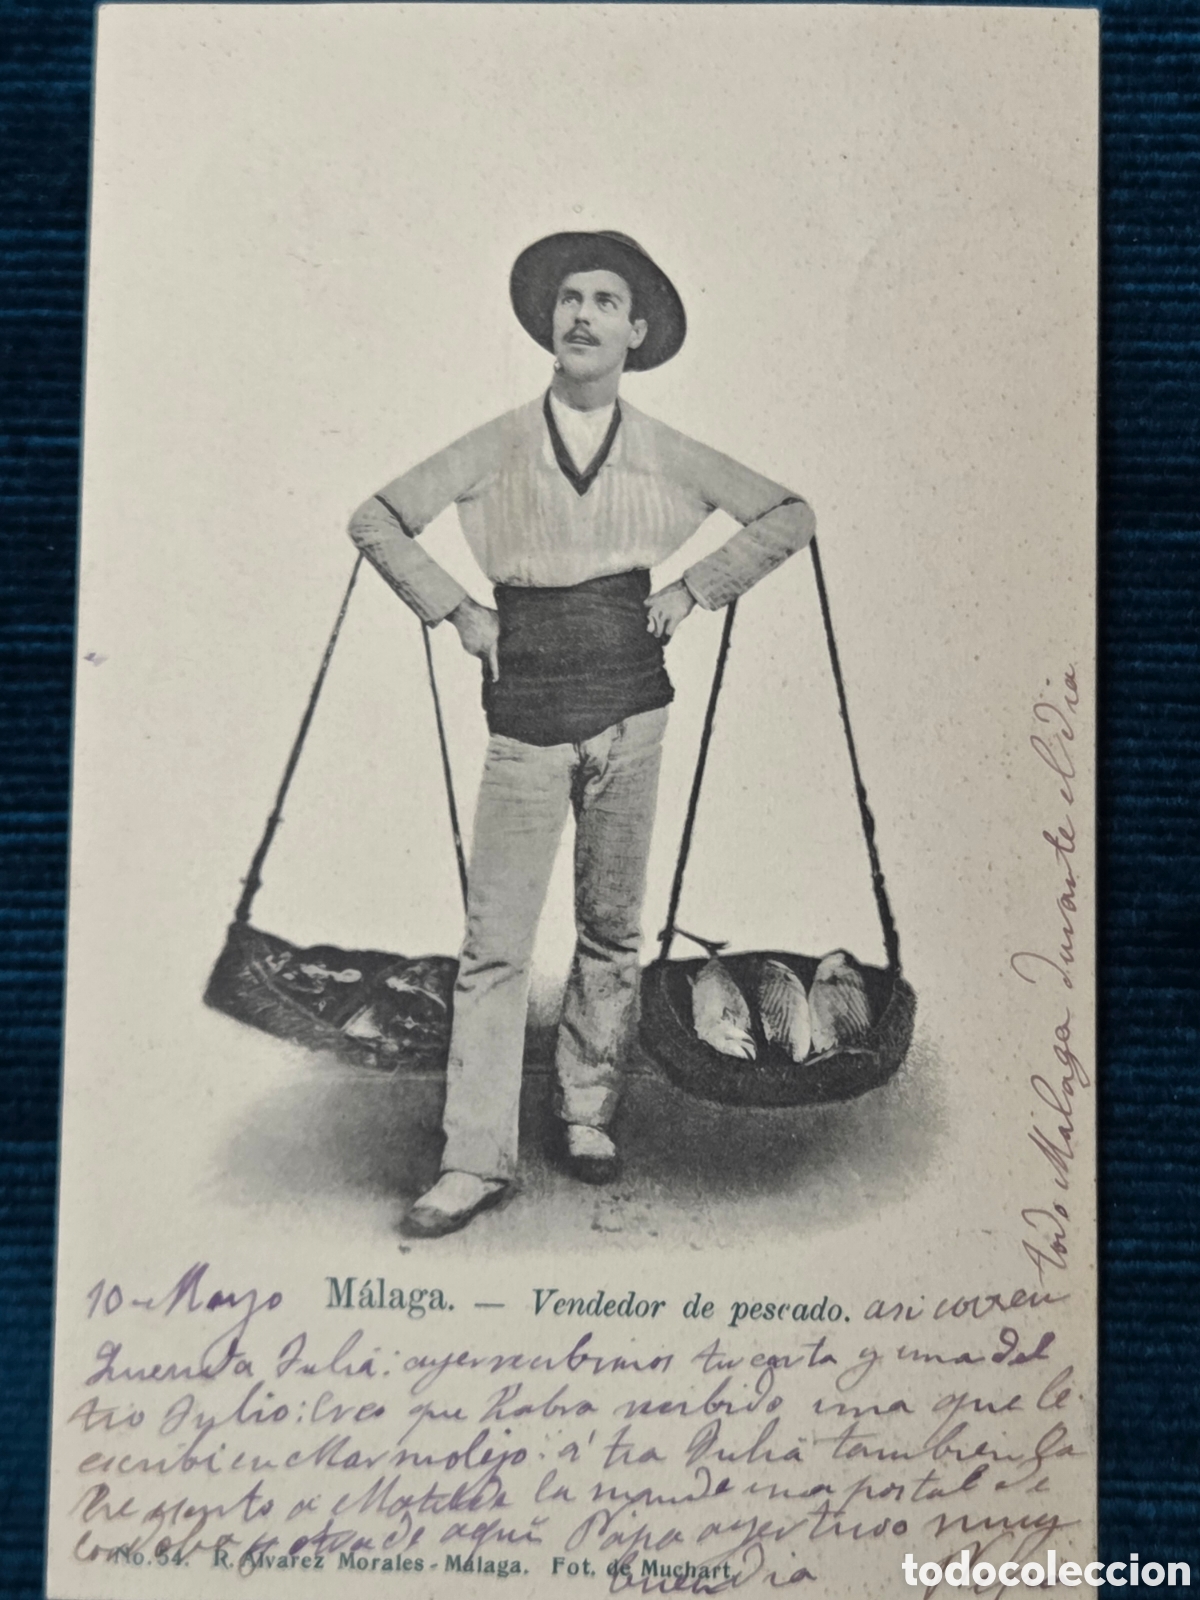 10 - Mayo Málaga. — Vendedor de pescado. asi corren
todo Málaga durante el dia
Querida Julia: ayer recibimos tu carta y una del
tio Julio: Creo que habra recibido una que le
escribi en Marmolejo: á tia Julia tambien la
a Matilde la mandé una postal de
y otra de aqui Papa ayer tuvo muy
buen dia
No. 54. R. Alvarez Morales - Málaga. Fot. de Muchart.
todocoleccion